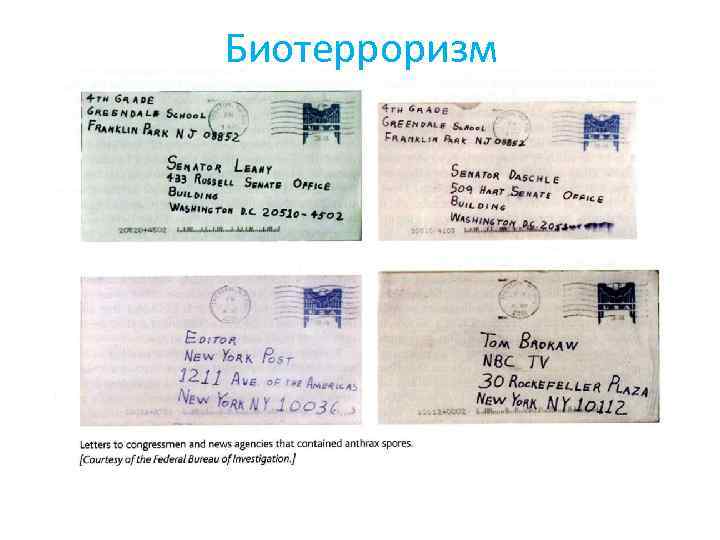 Биотерроризм
4TH GRADE
GREENDALE SCHOOL
FRANKLIN PARK NJ 08852
SENATOR LEAHY
433 RUSSELL SENATE OFFICE
BUILDING
WASHINGTON D.C. 20510-4502
20510+4502
USA
4TH GRADE
GREENDALE SCHOOL
FRANKLIN PARK NJ 08852
SENATOR DASCHLE
509 HART SENATE OFFICE
BUILDING
WASHINGTON D.C.
USA
EDITOR
NEW YORK POST
1211 AVE. OF THE AMERICAS
NEW YORK NY 10036
USA
TOM BROKAW
NBC TV
30 ROCKEFELLER PLAZA
NEW YORK NY 10112
USA
Letters to congressmen and news agencies that contained anthrax spores.
[Courtesy of the Federal Bureau of Investigation.]